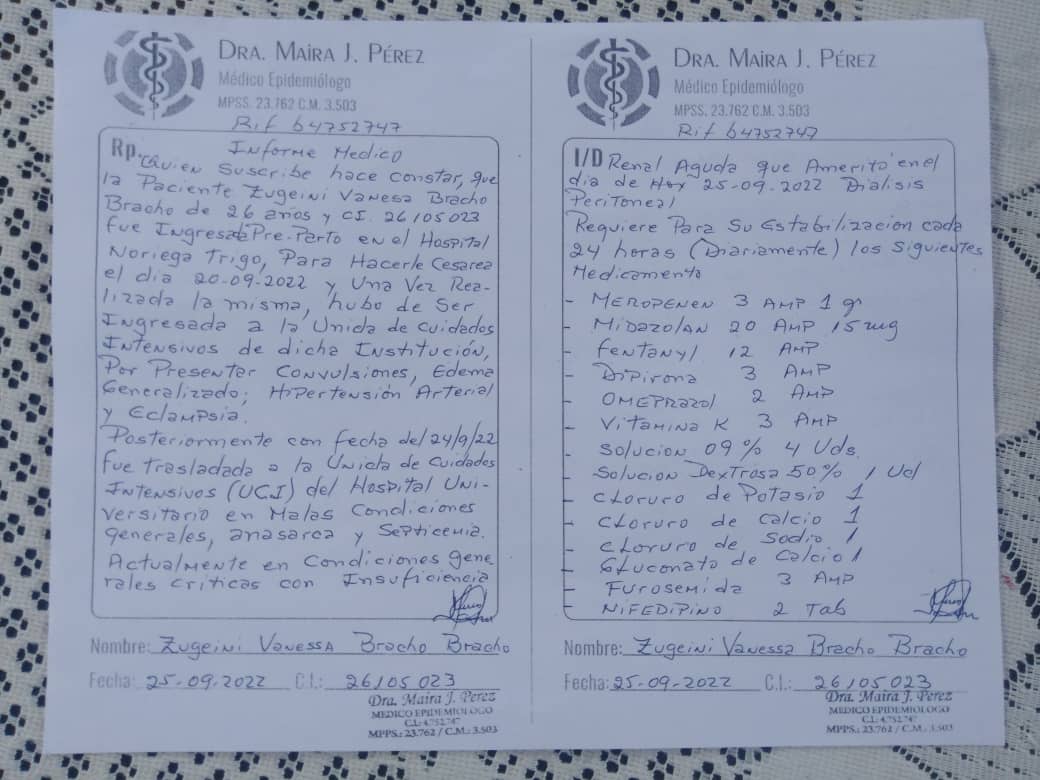 DRA. MAIRA J. PÉREZ
Médico Epidemiólogo
MPSS. 23.762 C.M. 3.503
Rif 64752747
Informe Medico
Rp. Quien Suscribe hace constar, que
la Paciente Zugeini Vanesa Bracho
Bracho de 26 años y CI. 26105023
fue Ingresada Pre-Parto en el Hospital
Noriega Trigo, Para Hacerle Cesarea
el dia 20-09-2022 y Una Vez Rea-
lizada la misma, hubo de Ser
Ingresada a la Unida de Cuidados
Intensivos de dicha Institución,
Por Presentar Convulsiones, Edema
Generalizado; Hipertensión Arterial
y Eclampsia.
Posteriormente con fecha del 24/9/22
fue trasladada a la Unida de Cuidados
Intensivos (UCI) del Hospital Uni-
versitario en Malas Condiciones
generales, anasarca y Septicemia.
Actualmente en Condiciones gene
rales Criticas con Insuficiencia
Nombre: Zugeini Vanessa Bracho Bracho
Fecha: 25-09.2022 C.I.: 26105023
Dra. Maira J. Perez
MEDICO EPIDEMIOLOGO
C.I.: 4.752.747
MPPS.: 23.762 / C.M.: 3.503
DRA. MAIRA J. PÉREZ
Médico Epidemiólogo
MPSS. 23.762 C.M. 3.503
Rif 64752747
I/D Renal Aguda que Ameritó en el
dia de Hoy 25-09.2022 Dialisis
Peritoneal
Requiere Para Su Estabilización cada
24 horas (Diariamente) los Siguientes
Medicamento
- Meropenen 3 Amp 1 gr
- Midazolan 20 Amp 15 mg
- Fentanyl 12 Amp
- Dipirona 3 Amp
- Omeprazol 2 Amp
- Vitamina K 3 Amp
- Solucion 09 % 4 Uds.
- Solucion Dextrosa 50% 1 Ud
- Cloruro de Potasio 1
- Cloruro de Calcio 1
- Cloruro de Sodio 1
- Gluconato de Calcio 1
- Furosemida 3 Amp
- Nifedipino 2 Tab
Nombre: Zugeini Vanessa Bracho Bracho
Fecha: 25-09.2022 C.I.: 26105023
Dra. Maira J. Perez
MEDICO EPIDEMIOLOGO
C.I.: 4.752.747
MPPS.: 23.762 / C.M.: 3.503